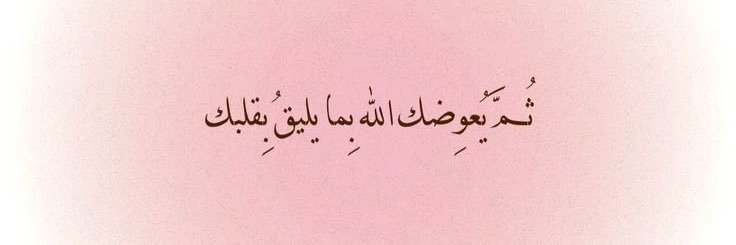 ثُمَّ يُعوِضك الله بِما يليقُ بِقلبك